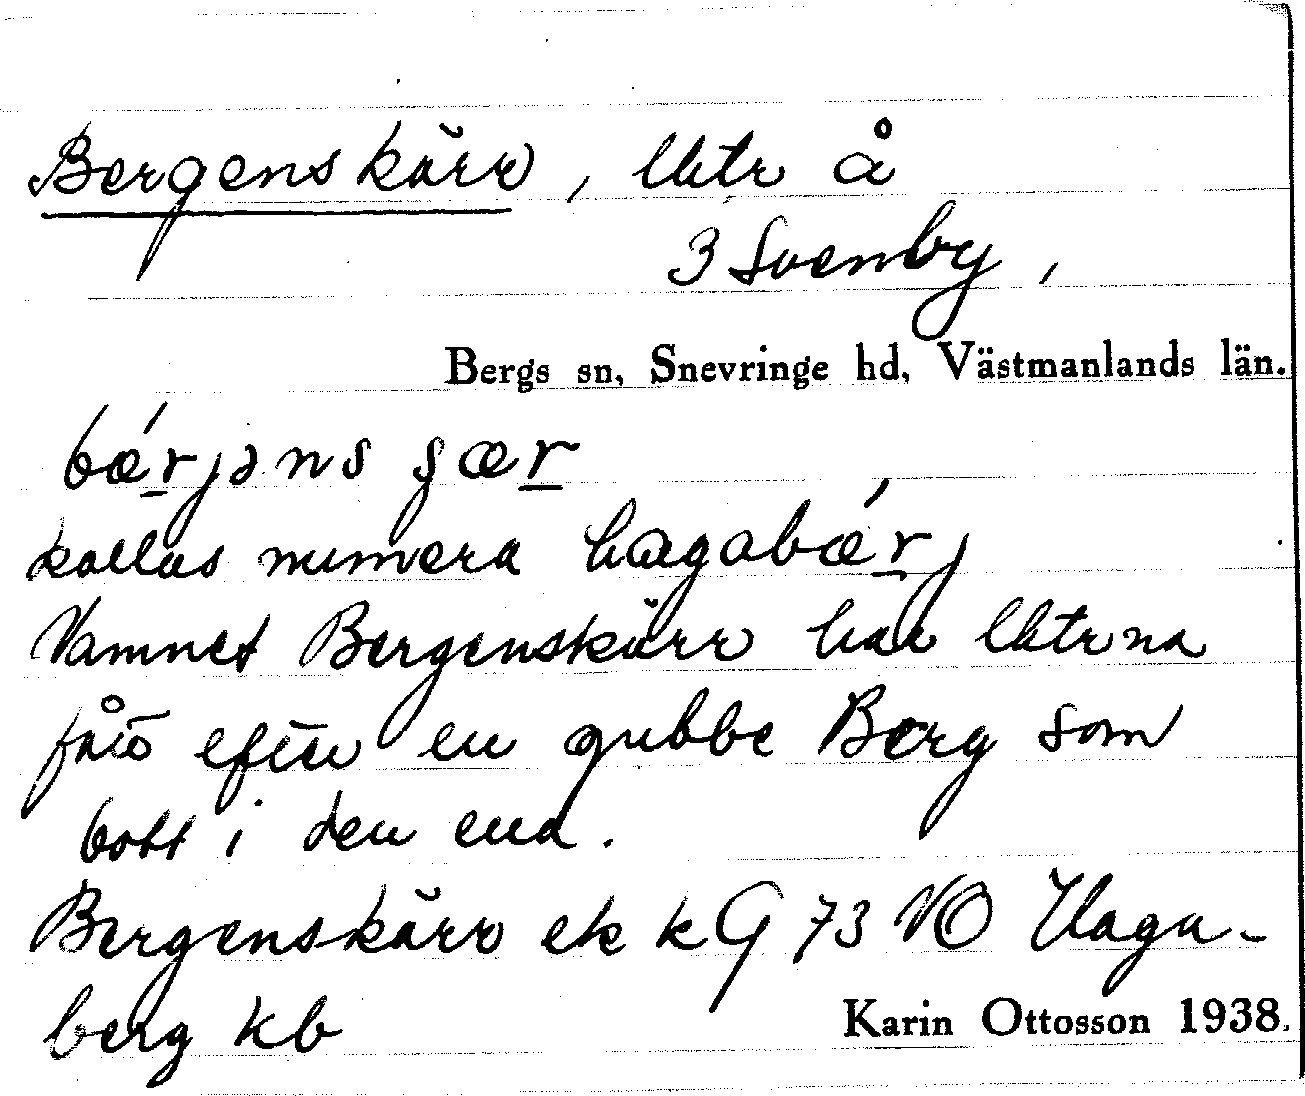 Bergenskärr, lhtr å
3 Svenby,
Bergs sn, Snevringe hd, Västmanlands län.
bǽrjəns ʂær
kallas numera hagabǽrj
Namnet Bergenskärr har lhtrna
fått efter en gubbe Berg som
bott i den ena.
Bergenskärr ek kG 73 NO Haga-
berg kb
Karin Ottosson 1938.